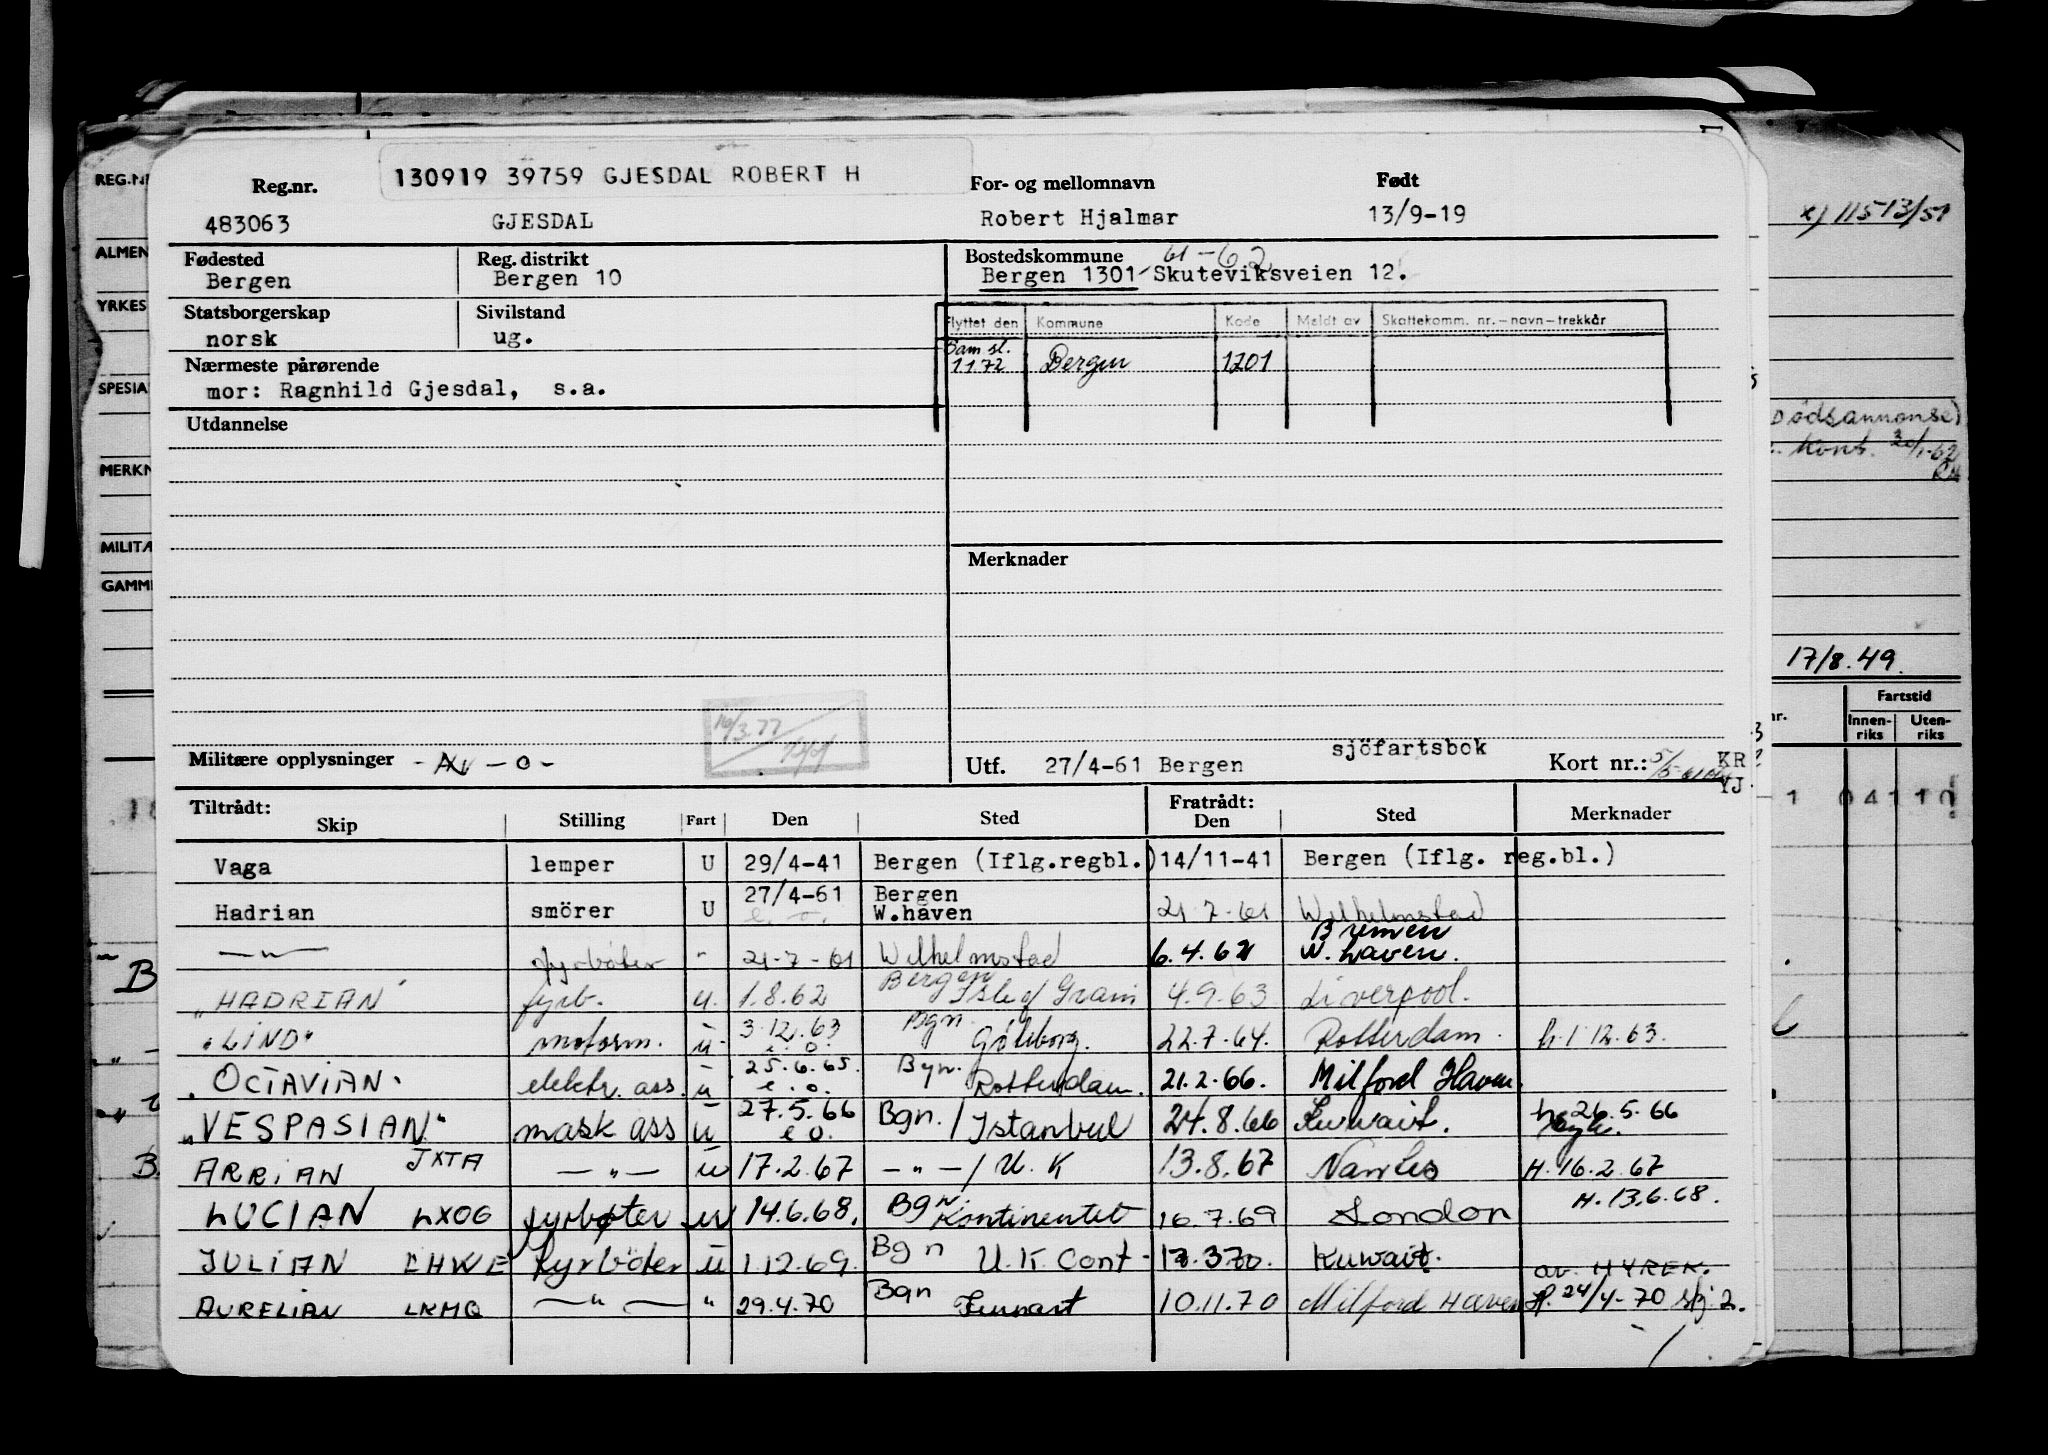 130919 39759 GJESDAL ROBERT H
Reg.nr. For- og mellomnavn Født
483063 GJESDAL Robert Hjalmar 13/9-19
Fødested Reg. distrikt Bostedskommune 61-62
Bergen Bergen 10 Bergen 1301 Skuteviksveien 12.
Statsborgerskap Sivilstand
norsk ug.
Flyttet den Kommune Kode Meldt av Skattekomm. nr.-navn-trekkår
Sam sl.
1172 Bergen 1201
Nærmeste pårørende
mor: Ragnhild Gjesdal, s.a.
Utdannelse
Merknader
16/3.77
Militære opplysninger - Av - o -
Utf. 27/4-61 Bergen sjöfartsbok Kort nr.: KR
YJ
Tiltrådt: Fratrådt:
Skip Stilling Fart Den Sted Den Sted Merknader
Vaga lemper U 29/4-41 Bergen (Iflg.regbl.) 14/11-41 Bergen (Iflg. reg.bl.)
27/4-61 Bergen
Hadrian smörer U e. o. W.haven 21-7-61 Wilhelmstad
Bremen
—"— fyrbøter " 21-7-61 Wilhelmstad 6.4.62 W. haven.
Bergen
"HADRIAN" fyrb. u. 1.8.62 Isle of Grain 4.9.63 Liverpool.
3.12.63 Bgn.
"LIND" motorm. u e.o. Göteborg. 22.7.64. Rotterdam. h. 1 12.63.
25.6.65. Bgn.
"OCTAVIAN" elektr. ass. u e.o. Rotterdam. 21.2.66. Milford Haven.
27.5.66 h. 26.5.66
"VESPASIAN" mask ass u e o. Bgn. / Istanbul 24.8.66 Kuwait.
ARRIAN JXTA —"— u 17.2.67 —"—/ U.K 13.8.67 Nantes H. 16.2.67
H. 13.6.68.
LUCIAN LXOG fyrbøter u 14.6.68. Bgn. Kontinentet 16.7.69 London
JULIAN LHWE fyrbøter u 1.12.69. Bgn U.K. Cont- 17.3.70. Kuwait.
av. HYREK.
AURELIAN LKMQ —"— " 29.4.70 Bgn Finnart 10.11.70 Milford Haven H. 24/4-70 skj. 2.
REG.N
ALMEN
YRKES
SPESIA
MERKN
MILITÆ
GAMM
B
B.
x) 11513/51
Dødsannonse)
Kont. 30/1-62
17/8.49.
nr. Fartstid
Innen-
riks Uten-
riks
1 04 11 10